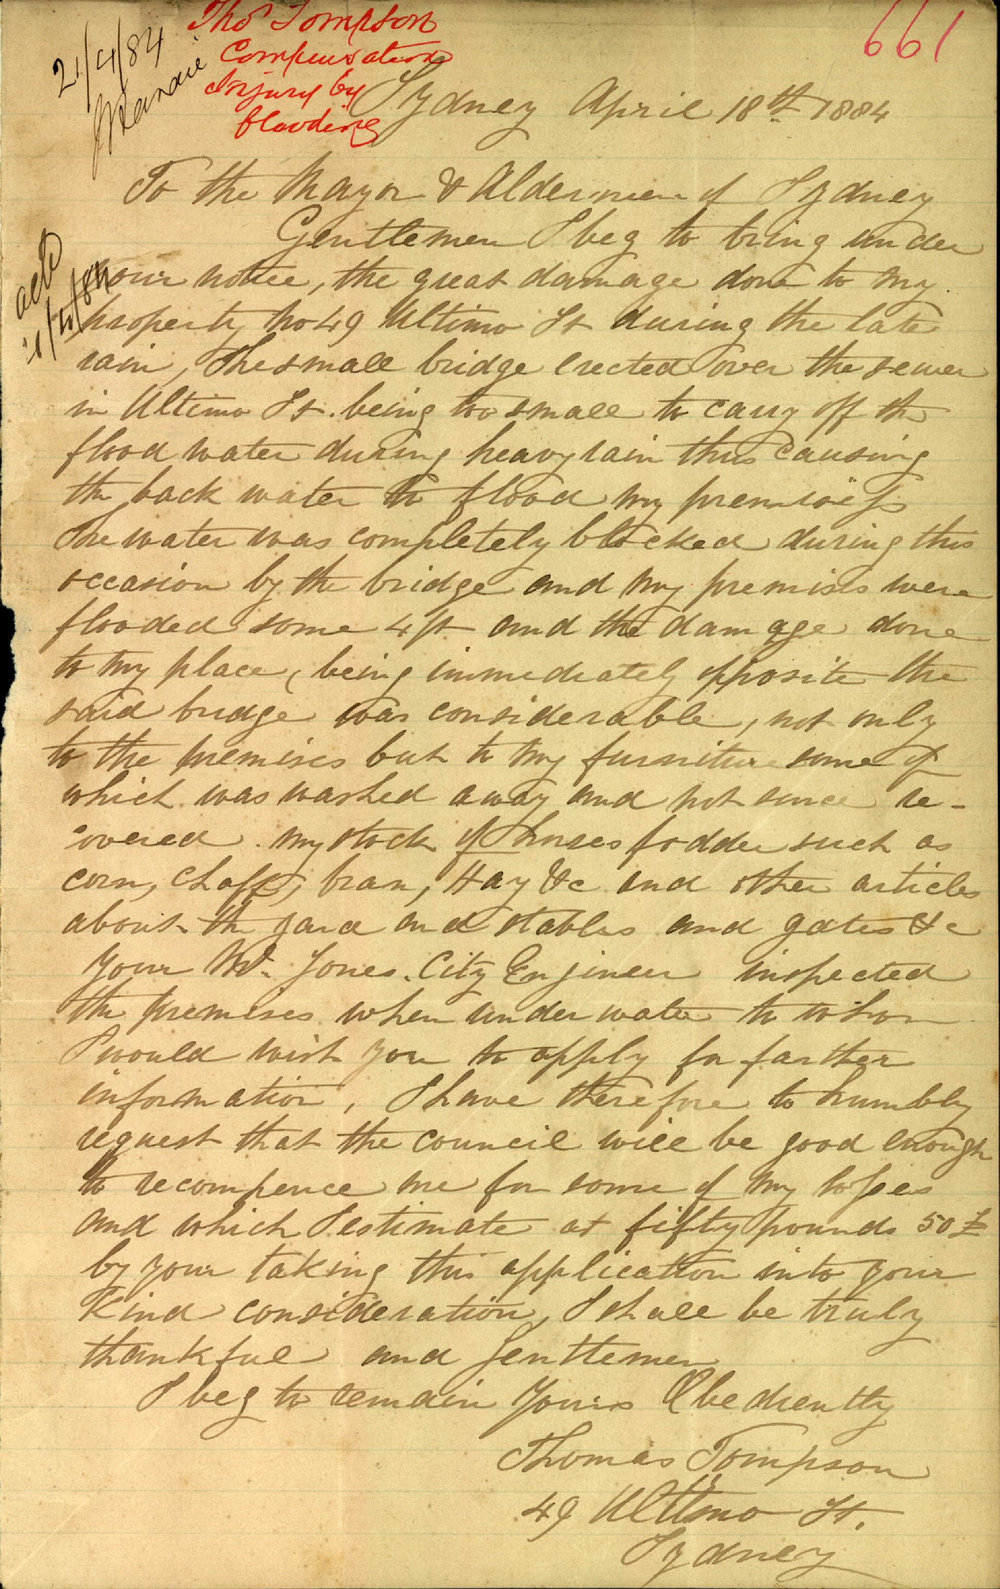 661
21/4/84
Thos Tompson
Compensation
Injury by
flooding
Sydney April 18th 1884
To the Mayor & Aldermen of Sydney
Gentlemen I beg to bring under
your notice, the great damage done to my
property No 49 Ultimo St during the late
rain, The small bridge erected over the sewer
in Ultimo St. being too small to carry off the
flood water during heavy rain thus causing
the back water to flood my premises
The water was completely blocked during this
occasion by the bridge and my premises were
flooded some 4 ft. and the damage done
to my place, being immediately opposite the
said bridge was considerable, not only
to the premises but to my furniture some of
which was washed away and not since re-
covered. my stock of horses fodder such as
corn, Chaff, bran, Hay &c and other articles
about the yard and stables and gates &c
Your Mr. Jones. City Engineer inspected
the premises when under water to whom
I would wish you to apply for farther
information, I have therefore to humbly
request that the council will be good enough
to recompence me for some of my losses
and which I estimate at fifty pounds 50£
by your taking this application into your
kind consideration, I shall be truly
thankful and Gentlemen
I beg to remain Yours Obediently
Thomas Tompson
49 Ultimo St.
Sydney